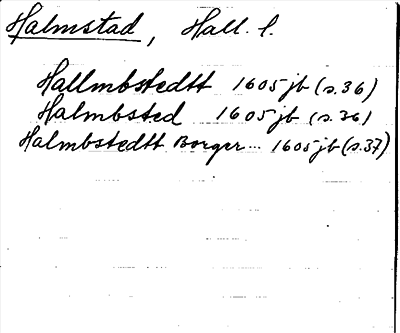 Halmstad, Hall. l.
Hallmbstedtt 1605 jb (s.36)
Halmbsted 1605 jb (s.36)
Halmbstedtt Borger... 1605 jb (s.37)